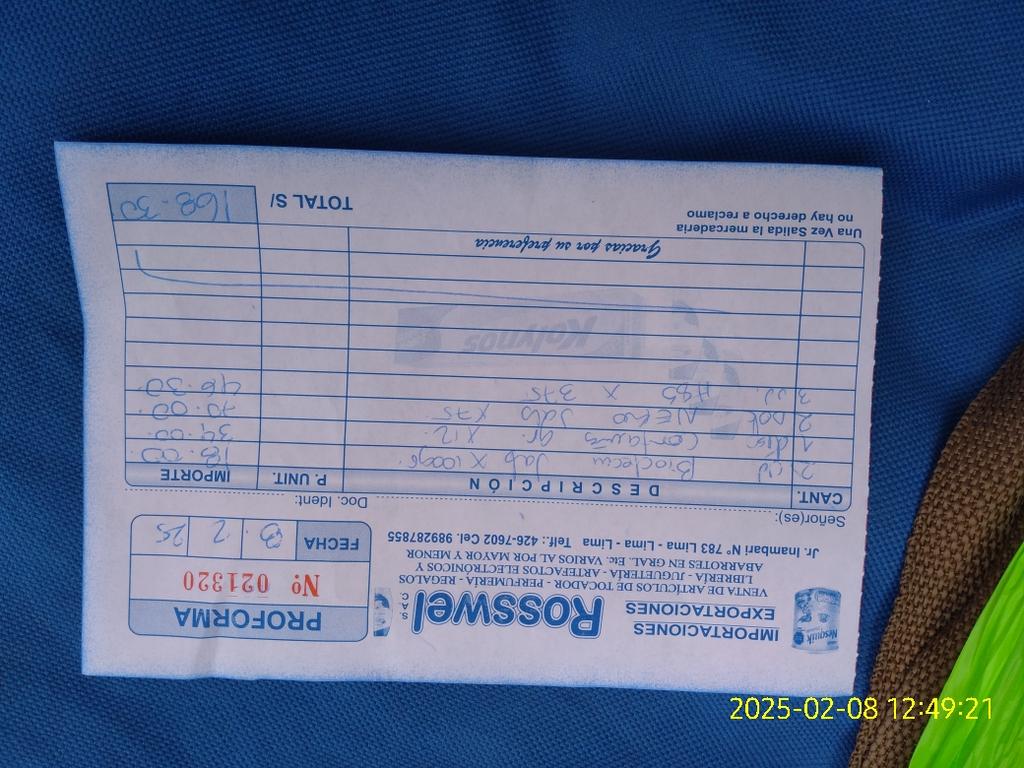 IMPORTACIONES
EXPORTACIONES
Rosswel
S.A.C.
Nesquik
VENTA DE ARTÍCULOS DE TOCADOR - PERFUMERÍA - REGALOS
LIBRERÍA - JUGUETERÍA - ARTEFACTOS ELECTRÓNICOS Y
ABARROTES EN GRAL. Etc. VARIOS AL POR MAYOR Y MENOR
Jr. Inambari N° 783 Lima - Lima - Lima Telf.: 426-7602 Cel. 989287855
PROFORMA
Nº 021320
FECHA 8. 2 25
Señor(es):
Doc. Ident:
CANT. DESCRIPCIÓN P. UNIT. IMPORTE
2 Jab X 100gr 18.00
1 gr. X12. 34.00
2 Jab X75 70.00
3 X 375 46.30
Kolynos
Gracias por su preferencia
Una Vez Salida la mercaderia
no hay derecho a reclamo
TOTAL S/ 168.30
2025-02-08 12:49:21